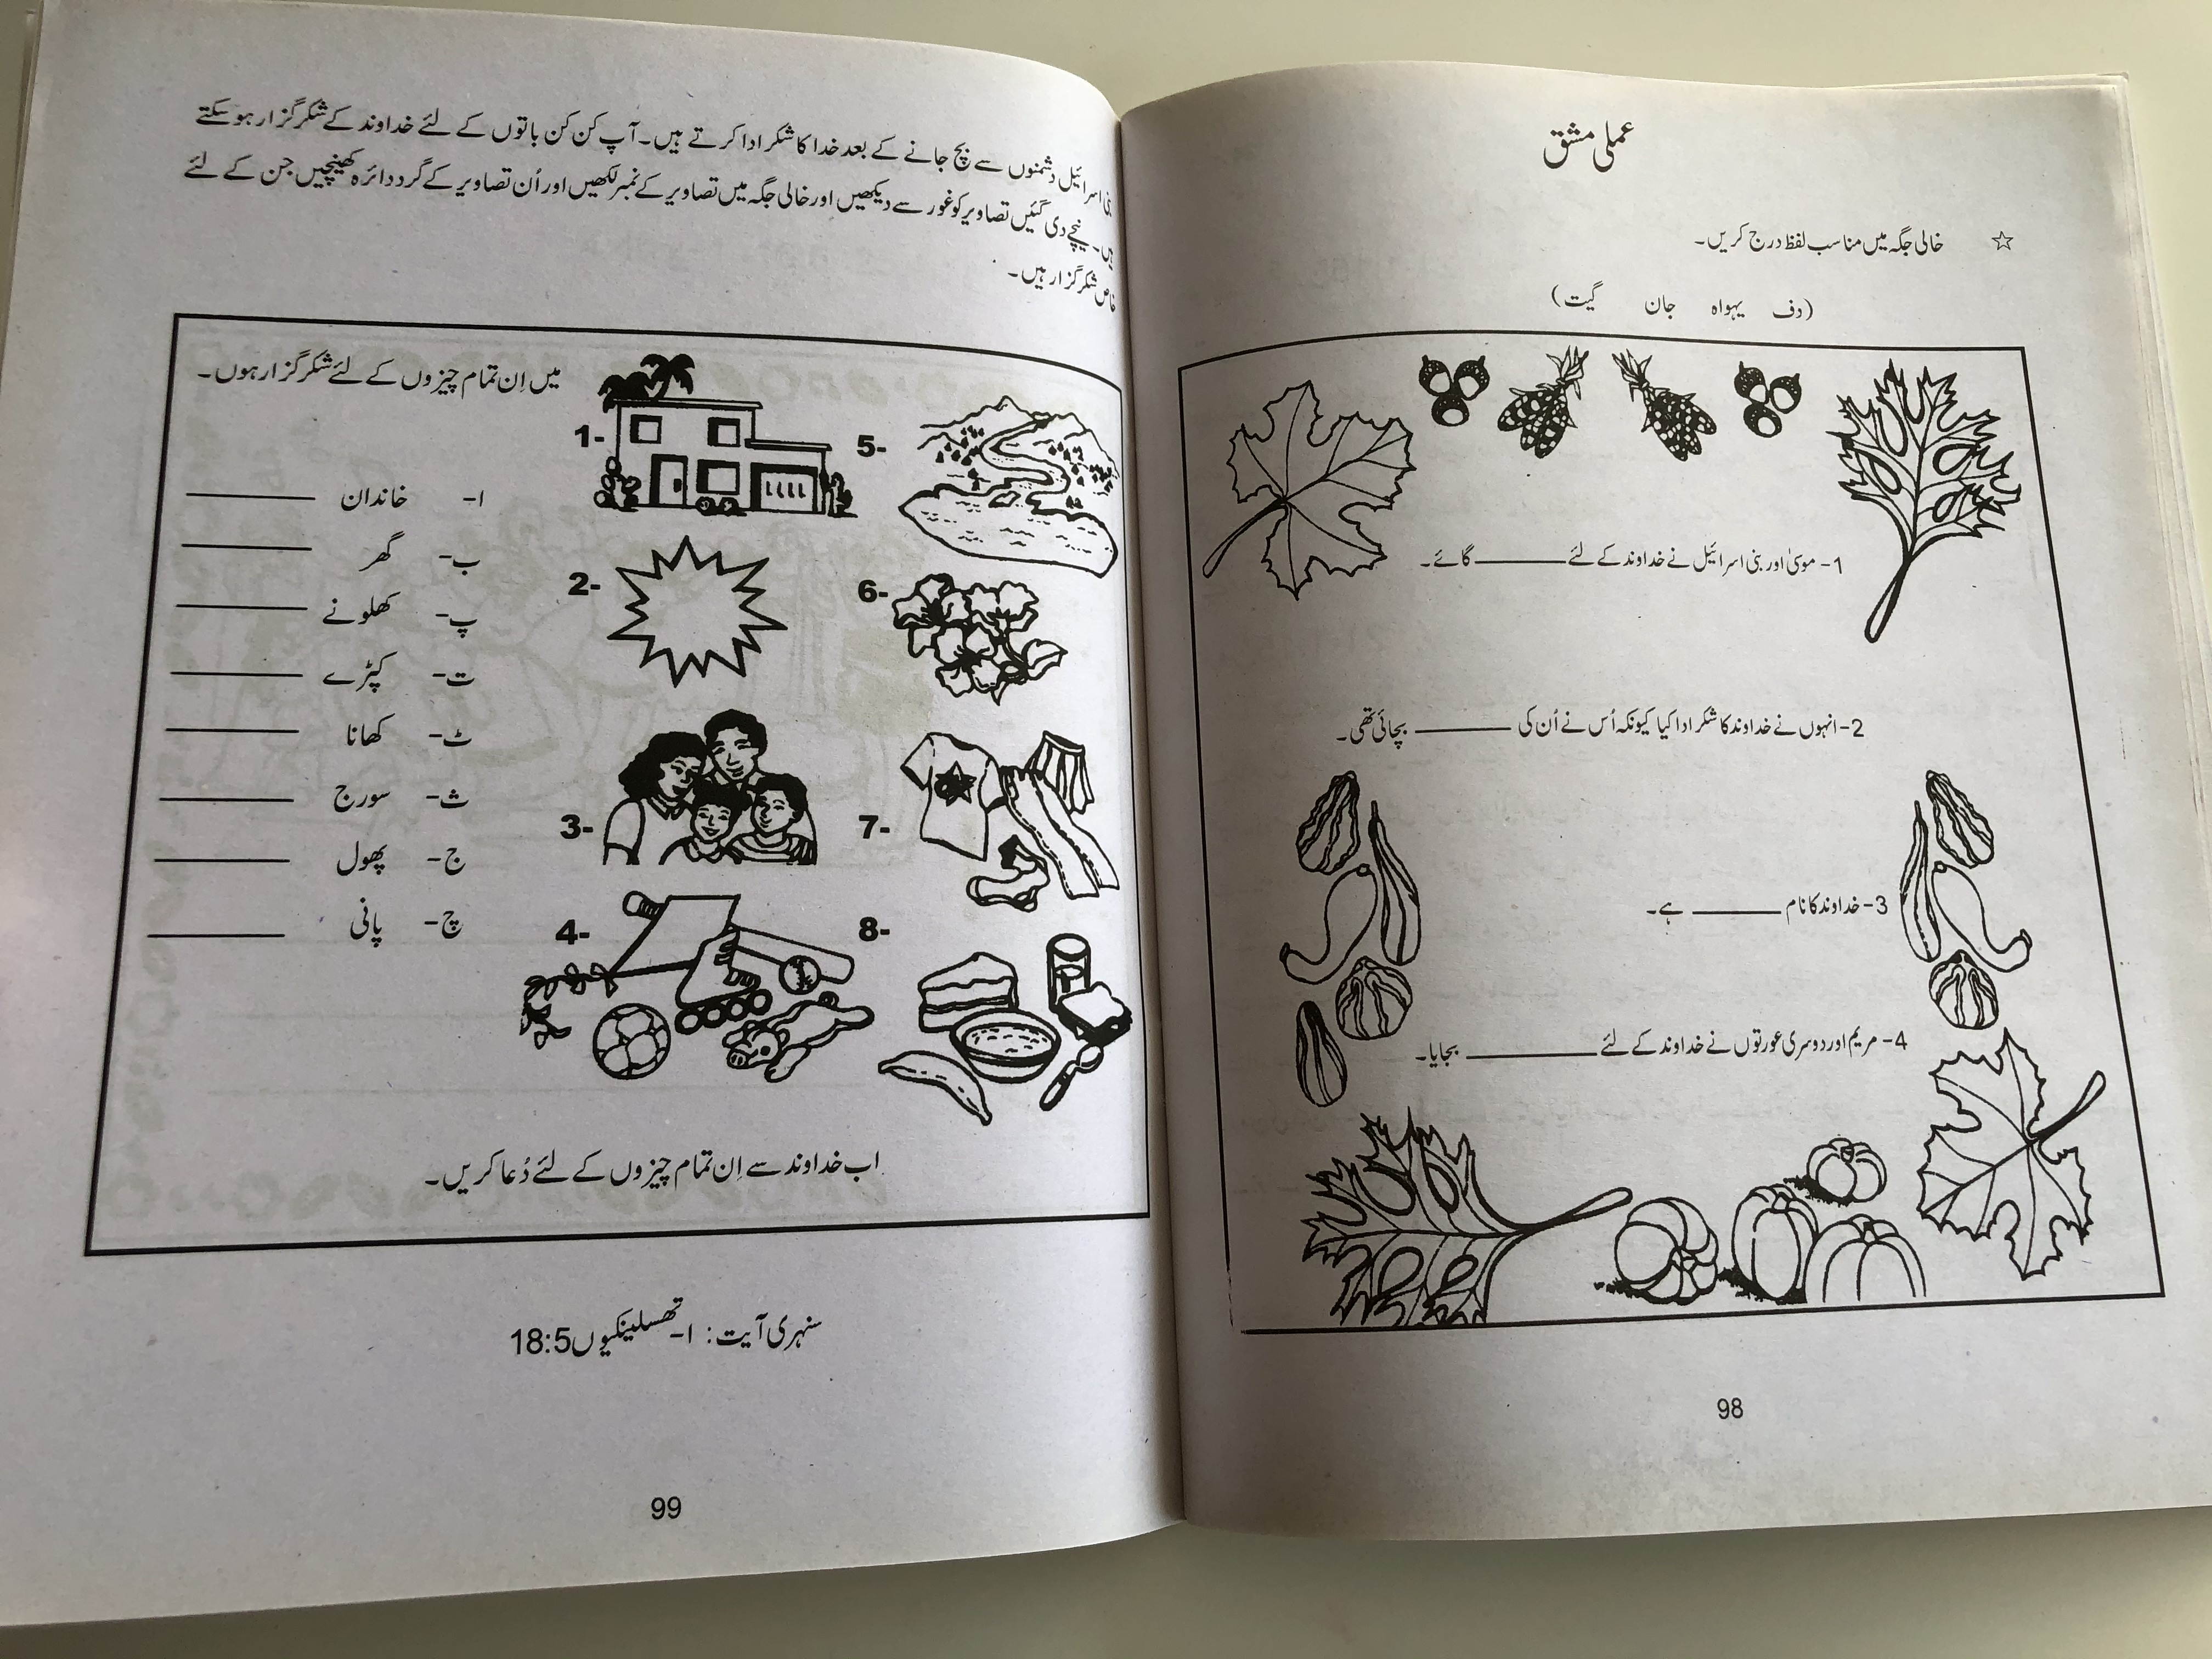 عملی مشق
☆ خالی جگہ میں مناسب لفظ درج کریں۔
(دف یہواہ جان گیت)
1- موسیٰ اور بنی اسرائیل نے خداوند کے لئے ________ گائے۔
2- انہوں نے خداوند کا شکر ادا کیا کیونکہ اُس نے اُن کی ________ بچائی تھی۔
3- خداوند کا نام ________ ہے۔
4- مریم اور دوسری عورتوں نے خداوند کے لئے ________ بجایا۔
98
بنی اسرائیل دشمنوں سے بچ جانے کے بعد خدا کا شکر ادا کرتے ہیں۔ آپ کن کن باتوں کے لئے خداوند کے شکر گزار ہو سکتے
ہیں۔ نیچے دی گئیں تصاویر کو غور سے دیکھیں اور خالی جگہ میں تصاویر کے نمبر لکھیں اور اُن تصاویر کے گرد دائرہ کھینچیں جن کے لئے
خاص شکر گزار ہیں۔
میں اِن تمام چیزوں کے لئے شکر گزار ہوں۔
1-
5-
2-
6-
3-
7-
4-
8-
ا- خاندان ________
ب- گھر ________
پ- کھلونے ________
ت- کپڑے ________
ٹ- کھانا ________
ث- سورج ________
ج- پھول ________
چ- پانی ________
اب خداوند سے اِن تمام چیزوں کے لئے دُعا کریں۔
سنہری آیت: ا-تھسلینکیوں 18:5
99